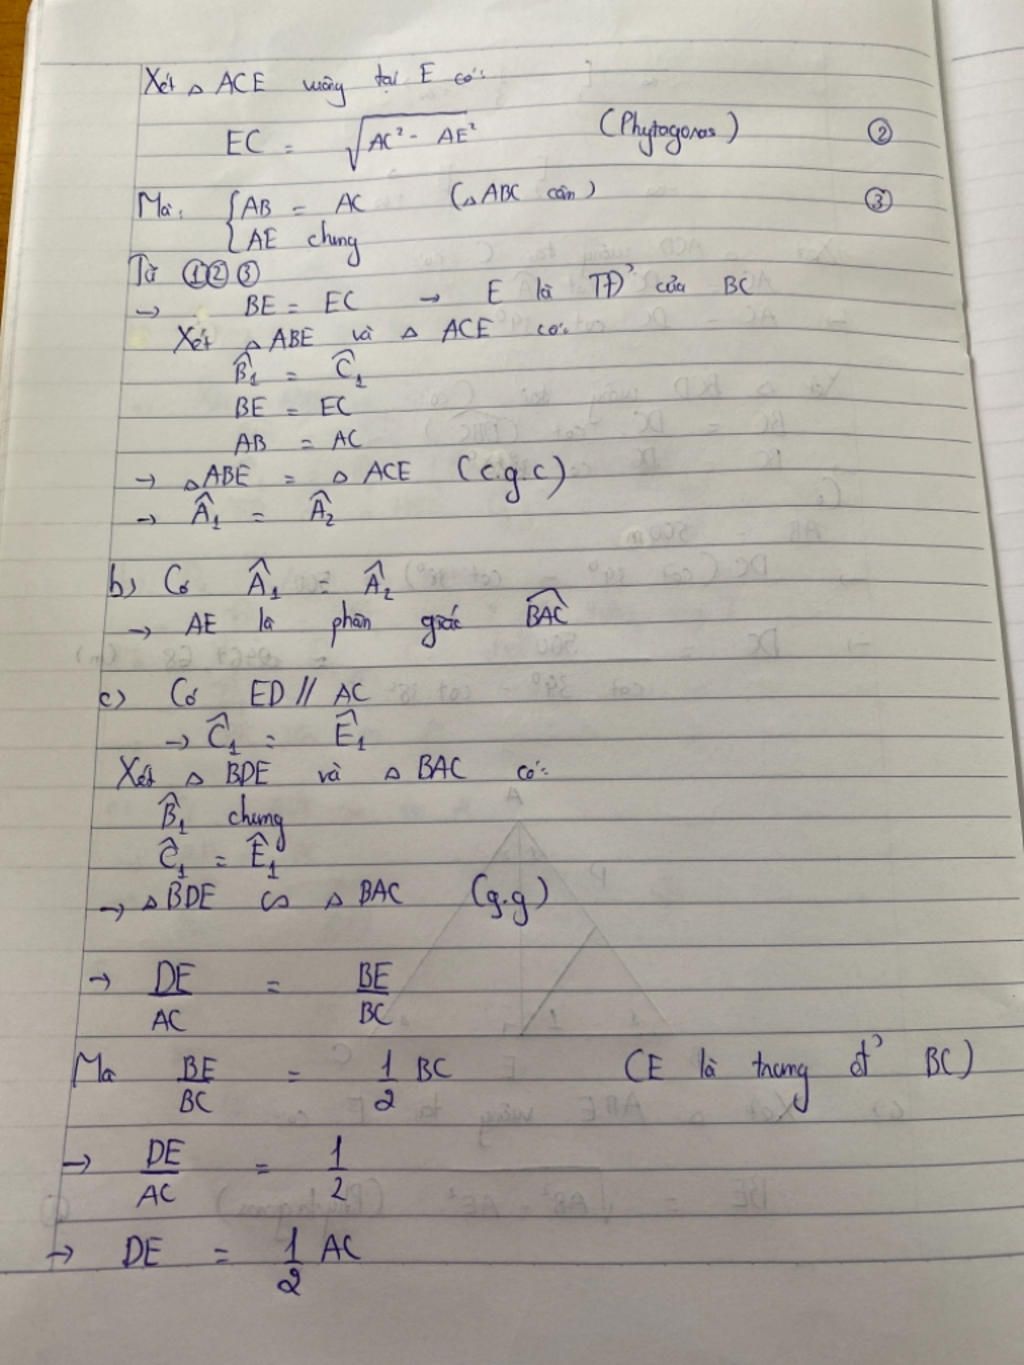 Xét △ ACE vuông tại E có:
EC = √AC² - AE² (Phytagoras) ②
Mà: { AB = AC (△ABC cân) ③
AE chung
Từ ①②③
→ BE = EC → E là TĐ' của BC
Xét △ ABE và △ ACE có:
B̂₁ = Ĉ₁
BE = EC
AB = AC
→ △ABE = △ ACE (c.g.c)
→ Â₁ = Â₂
b) Có Â₁ = Â₂
→ AE là phân giác BAC
c) Có ED // AC
→ Ĉ₁ = Ê₁
Xét △ BDE và △ BAC có:
B̂₁ chung
Ĉ₁ = Ê₁
→ △BDE ∽ △ BAC (g.g)
→ DE/AC = BE/BC
Mà BE/BC = 1/2 BC (E là trung đ' BC)
→ DE/AC = 1/2
→ DE = 1/2 AC